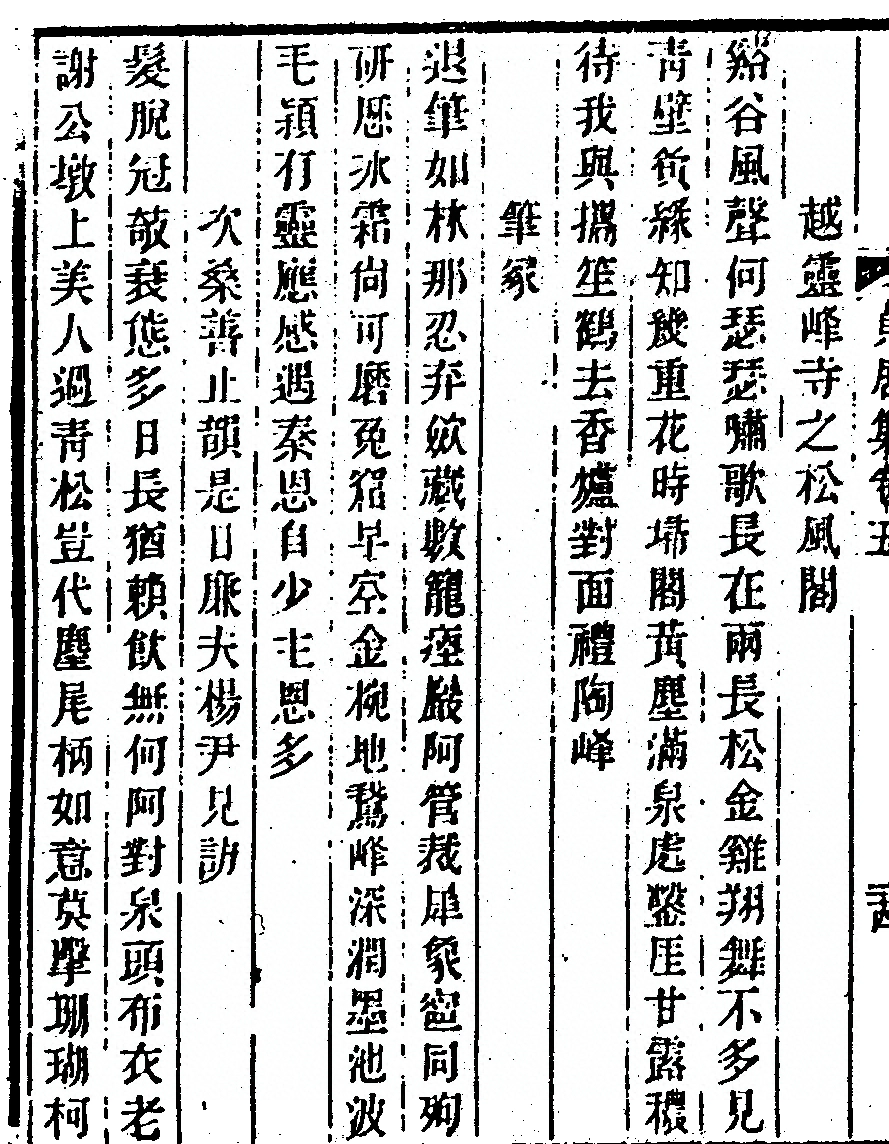 越靈峰寺之松風閣
谿谷風聲何瑟瑟嘯歌長在兩長松金雞翔舞不多見
青壁負綠知幾重花時埽閣黃塵滿泉處鑿厓甘露穠
待我與攜笙鶴去香爐對面禮陶峰
筆冢
退筆如林那忍弃斂藏數籠瘞巖阿管裁犀象窆同殉
研歷冰霜尚可磨兔窟早空金椀地鷲峰深潤墨池波
毛穎有靈應感遇秦恩自少主恩多
次桑善止韻是日廉夫楊尹見訪
髮脫冠敧衰態多日長猶賴飲無何阿對泉頭布衣老
謝公墩上美人過青松豈代麈尾柄如意莫擊珊瑚柯
集卷五